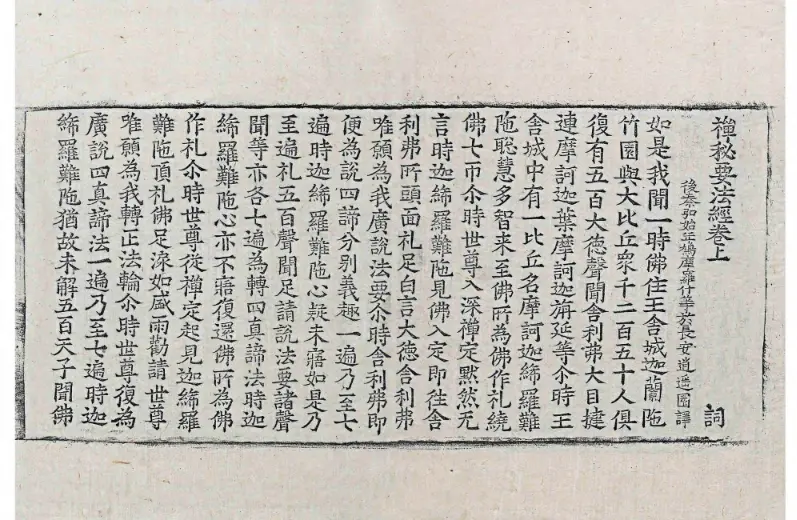 禪秘要法經卷上
詞
後秦弘始年鳩摩羅什等於長安逍遥園譯
如是我聞一時佛住王舍城迦蘭陁
竹園與大比丘衆千二百五十人俱
復有五百大德聲聞舍利弗大目揵
連摩訶迦葉摩訶迦旃延等尒時王
舍城中有一比丘名摩訶迦絺羅難
陁聡慧多智来至佛所為佛作礼繞
佛七帀尒時世尊入深禪定黙然无
言時迦絺羅難陁見佛入定即往舍
利弗所頭面礼足白言大德舍利弗
唯願為我廣說法要尒時舍利弗即
便為說四諦分别義趣一遍乃至七
遍時迦絺羅難陁心疑未寤如是乃
至遍礼五百聲聞足請說法要諸聲
聞等亦各七遍為轉四真諦法時迦
絺羅難陁心亦不寤復還佛所為佛
作礼尒時世尊従禪定起見迦絺羅
難陁頂礼佛足淚如盛雨勸請世尊
唯願為我轉正法輪尒時世尊復為
廣說四真諦法一遍乃至七遍時迦
絺羅難陁猶故未解五百天子聞佛